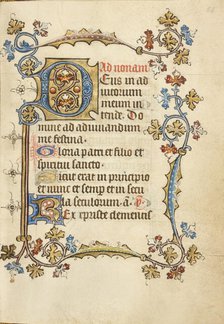 Ad nonam
Deus in ad
iutorium
meum in
tende. Do
mine ad adiuuandum
me festina.
Gloria patri et filio et
spiritui sancto.
Sicut erat in principio
et nunc et semp et in secu
la seculorum a